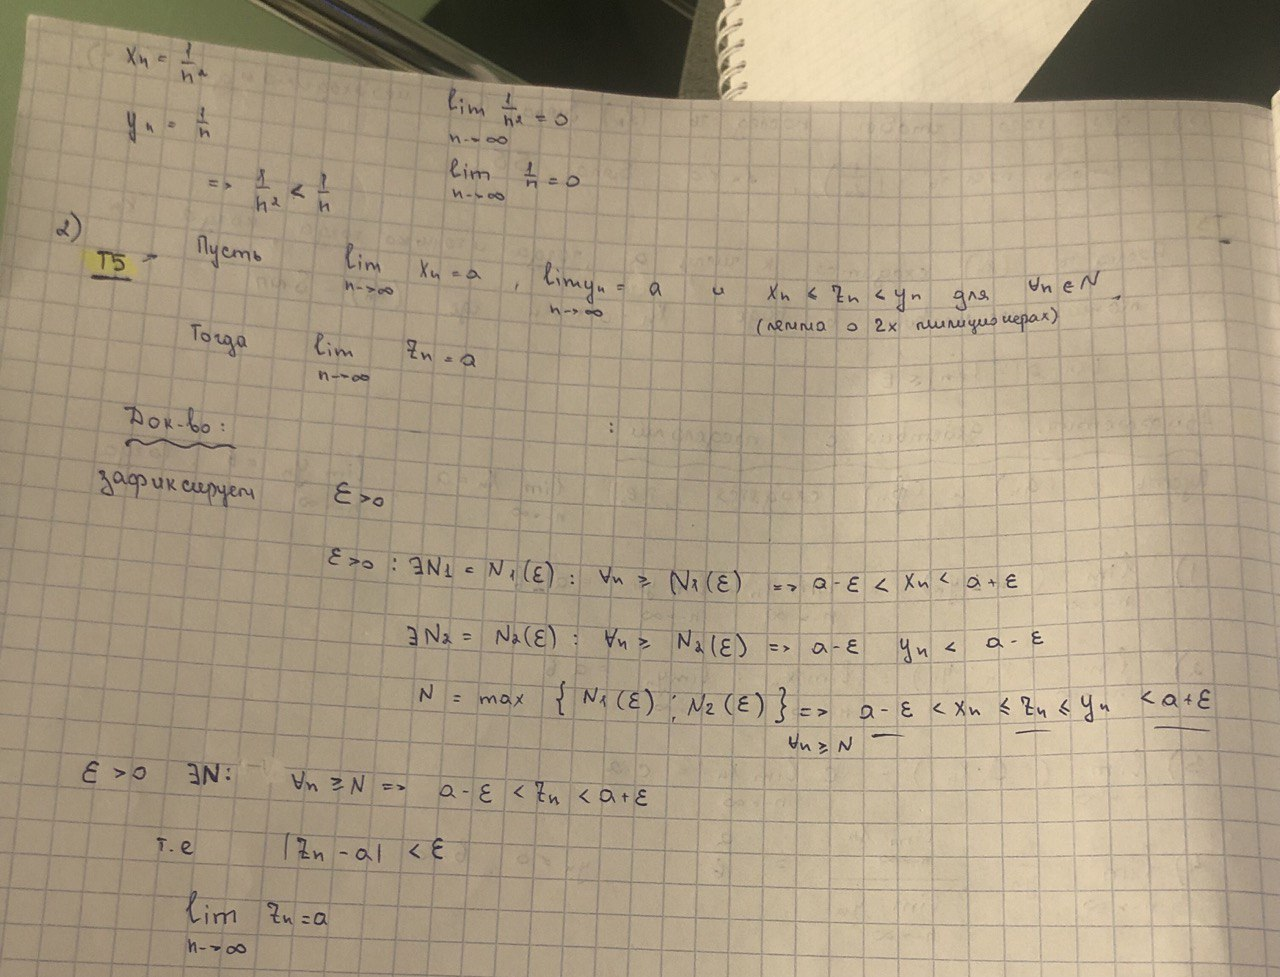 xn = 1/n²
yn = 1/n
lim n→∞ 1/n² = 0
lim n→∞ 1/n = 0
=> 1/n² < 1/n
2)
T5 - Пусть lim n→∞ xn = a , lim yn n→∞ = a и xn ≤ zn ≤ yn для ∀n ∈ N .
(лемма о 2х милиционерах)
Тогда lim n→∞ zn = a
Док-во:
зафиксируем ε > 0
ε > 0 : ∃N1 = N1(ε) : ∀n ≥ N1(ε) => a - ε < xn < a + ε
∃N2 = N2(ε) : ∀n ≥ N2(ε) => a - ε yn < a - ε
N = max { N1(ε) ; N2(ε) } => a - ε < xn ≤ zn ≤ yn < a + ε
∀n ≥ N
ε > 0 ∃N : ∀n ≥ N => a - ε < zn < a + ε
т.е |zn - a| < ε
lim n→∞ zn = a